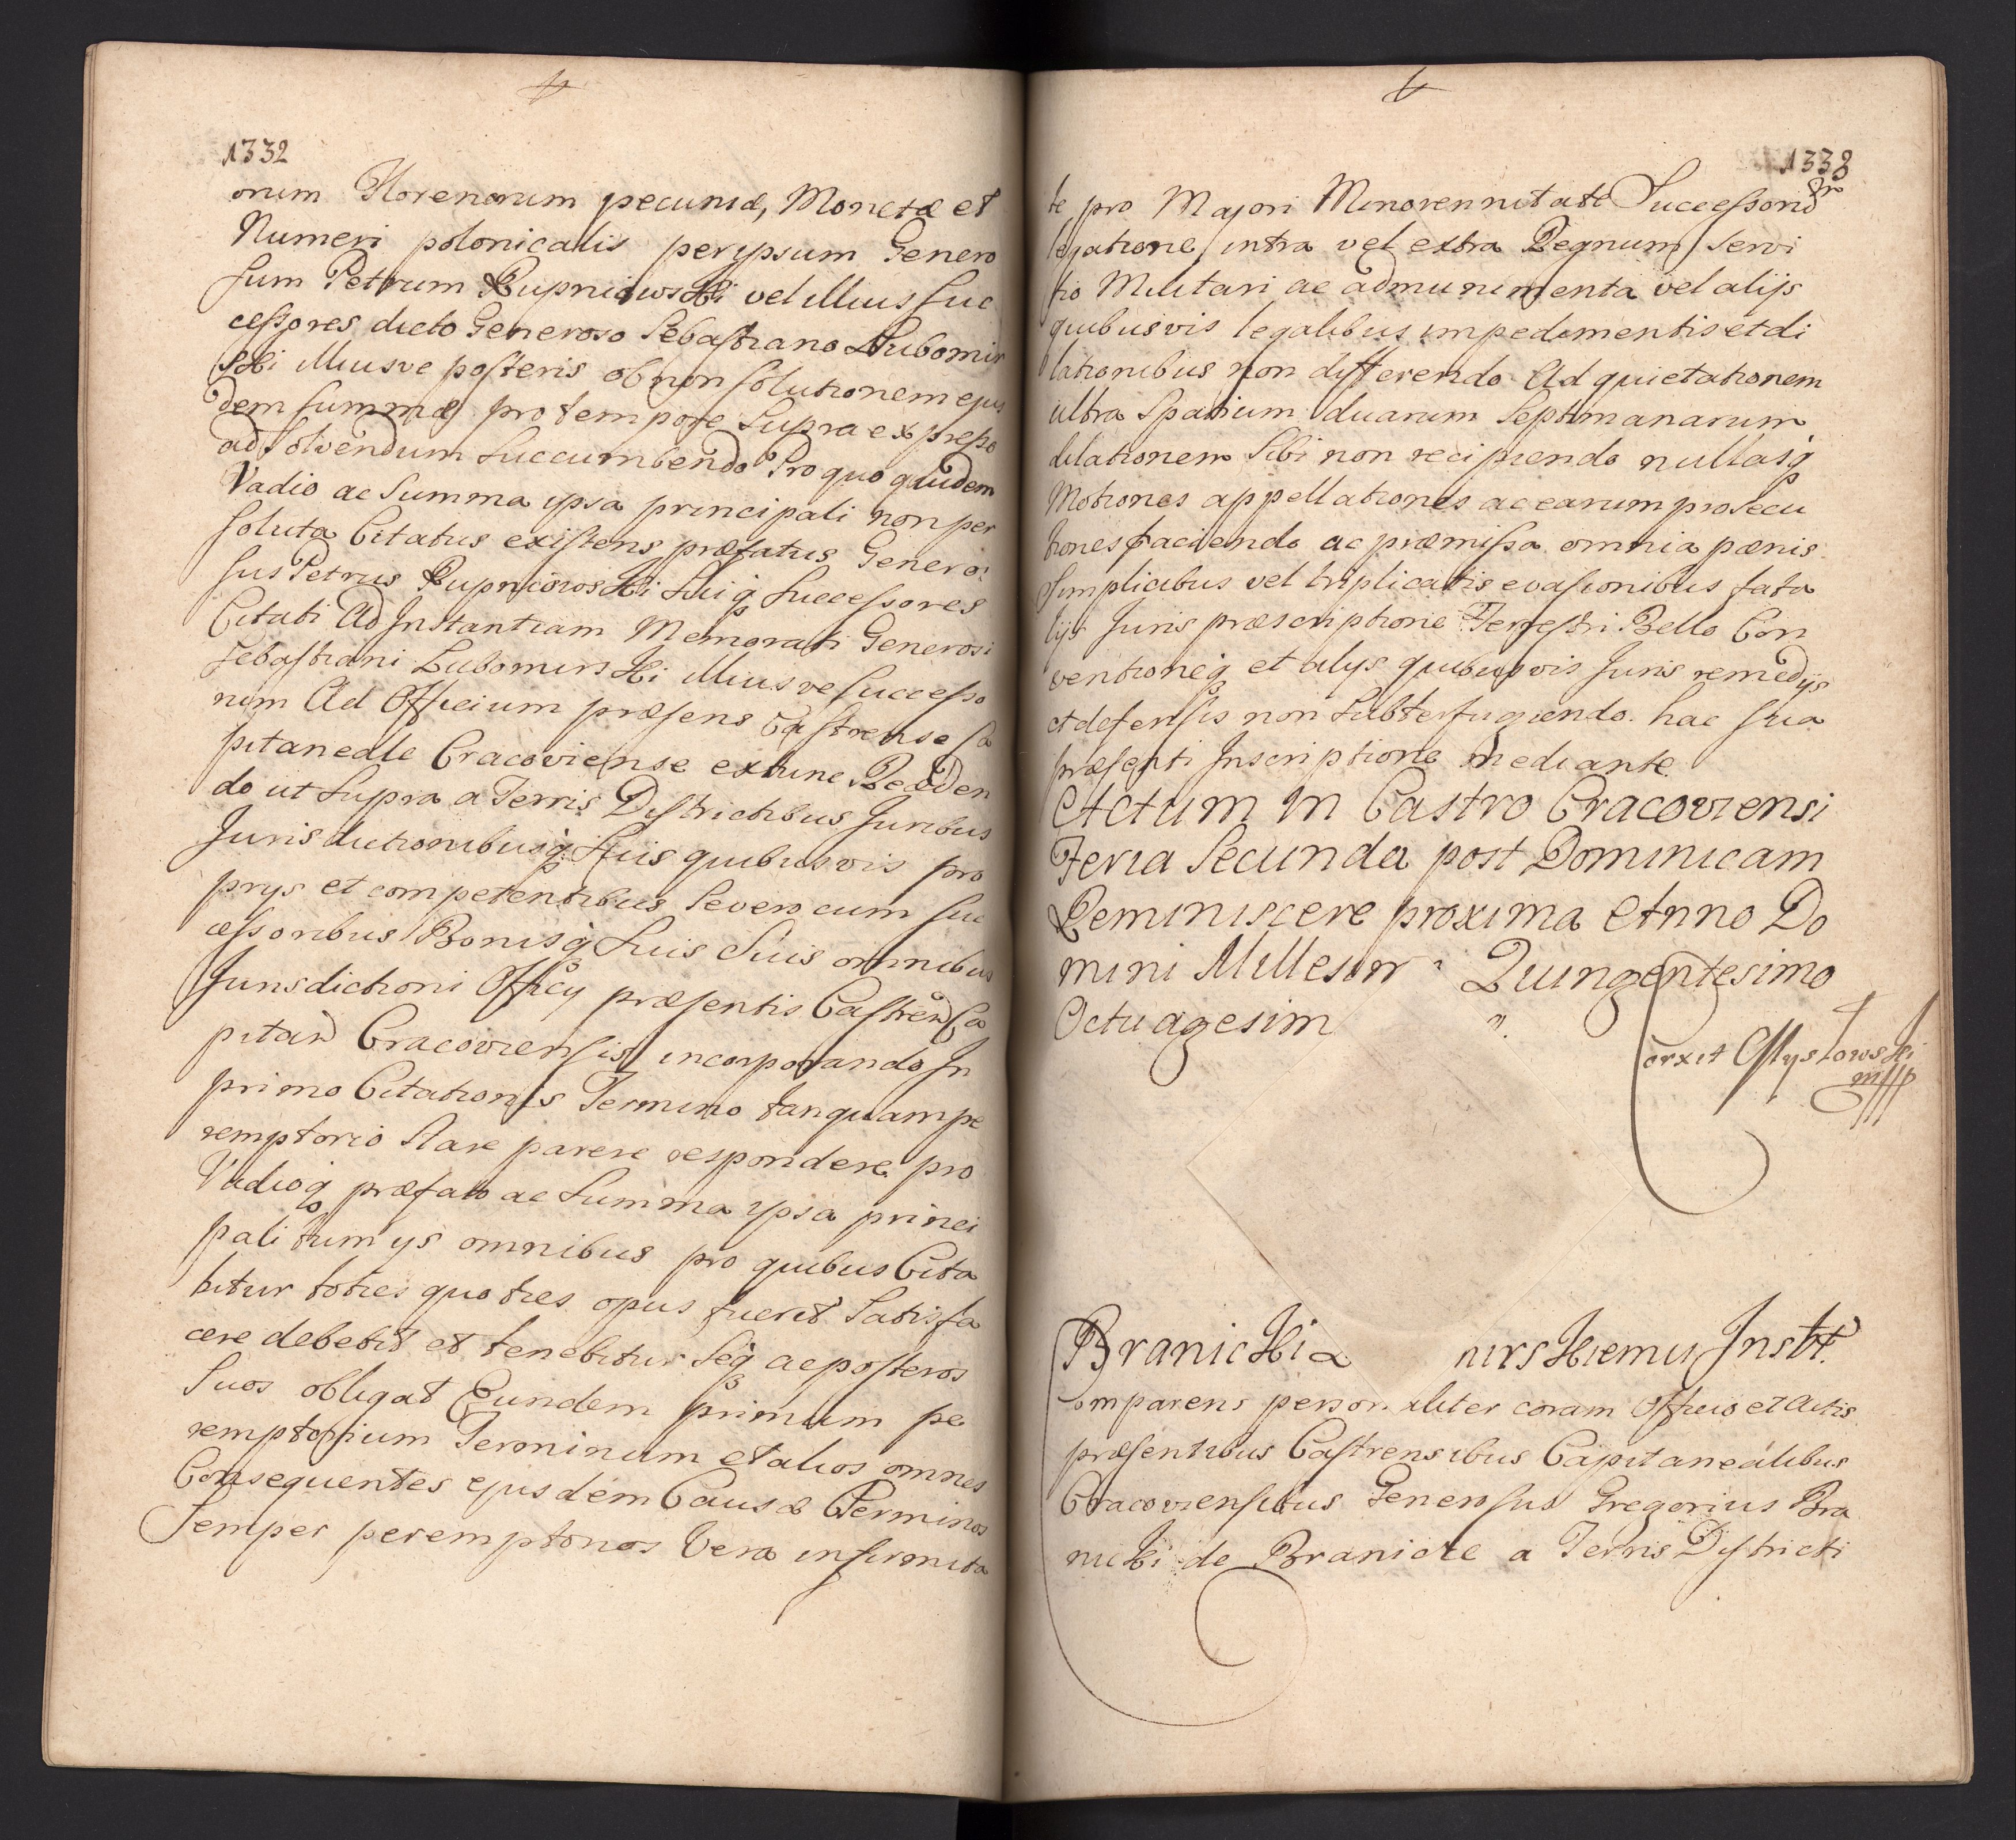 1332
orum Florenorum pecuniæ, Monetæ et
Numeri polonicalis per ipsum Genero
sum Petrum Rupniowski vel illius suc
cessores dicto Generoso Sebastiano Lubomir
ski illiusve posteris ob non solutionem ejus
dem summæ pro tempore supra expresso
ad solvendum succumbendo Pro quo quidem
Vadio ac Summa ipsa principali non per
soluta Citatus existens præfatus Genero
sus Petrus Rupniowski suiq Successores
Citati Ad Instantiam Memorati Generosi
Sebastiani Lubomirski illiusve Successo
rum Ad Officium præsens Castrense Ca
pitaneale Cracoviense extunc Receden
do ut supra a Terris Districtibus Juribus
Jurisdictionibusq suis quibusvis pro
prys et competentibus Seveso cum suc
cessoribus Bonisq suis Suis omnibus
Jurisdictioni Officy præsentis Castren Ca
pitan Cracoviensis incorporando In
primo Citationis Termino tanquam pe
remptorio stare parere respondere pro
Vadioq præfato ac Summa ipsa princi
pali tum ys omnibus pro quibus Cita
bitur toties quoties opus fuerit Satisfa
cere debebit et tenebitur seq ac posteros
Suos obligat Eundem primum pe
remptorium Terminum et alios omnes
Consequentes ejusdem Causæ Terminos
Semper peremptorios Vera infirmita
1333
te pro Majori Minorennitate Successorū
legatione intra vel extra Regnum servi
tio Militari ac ad munimenta vel alijs
quibusvis legalibus impedimentis et di
lationibus non differendo Ad quietationem
ultra Spatium duarum Septimanarum
dilationem Sibi non recipiendo nullasq
Motiones appellationes ac earum prosecu
tiones faciendo ac præmissa omnia pænis
Simplicibus vel triplicatis evasionibus fata
lijs Juris præscriptione Terrestri Bello Con
ventioneq et alys quibusvis Juris remedijs
et defensis non subterfugiendo. hac sua
præsenti Inscriptione mediante
Actum in Castro Cracoviensi
Feria Secunda post Dominicam
Reminiscere proxima Anno Do
mini Millesim Quingentesimo
Octuagesim
Corxit
Branicki nirskiemu Inst.
Comparens personaliter coram Officio et Actis
præsentibus Castrensibus Capitanealibus
Cracoviensibus Generosus Gregorius Bra
nicki de Branice a Terris Districti